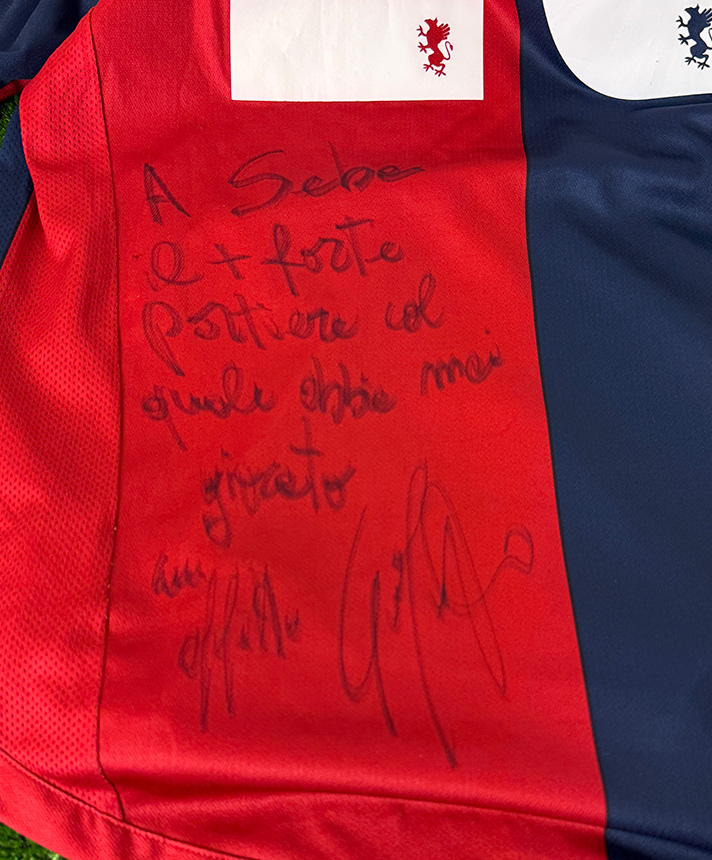 A Sebe
il + forte
portiere col
quale abbia mai
giocato
con
affetto